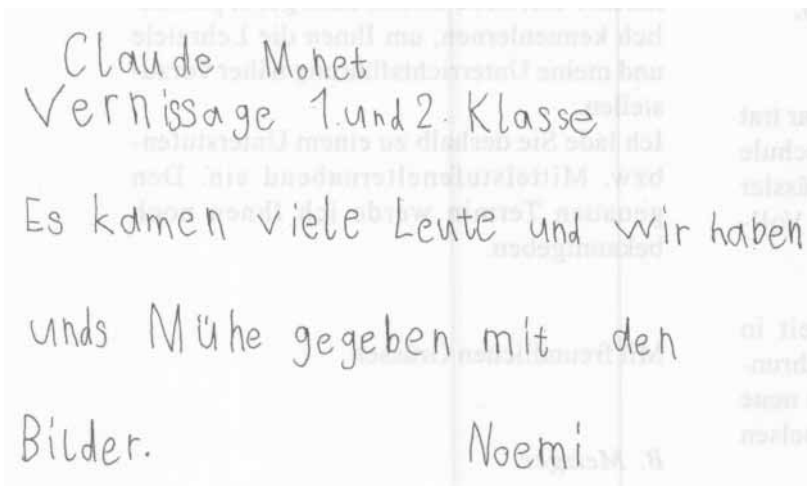 Claude Monet
Vernissage 1. und 2. Klasse
Es kamen viele Leute und wir haben
unds Mühe gegeben mit den
Bilder. Noemi